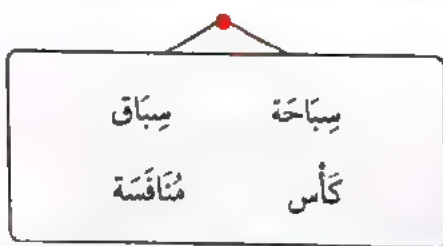 سِبَاحَة سِبَاق
كَأْس مُنَافَسَة